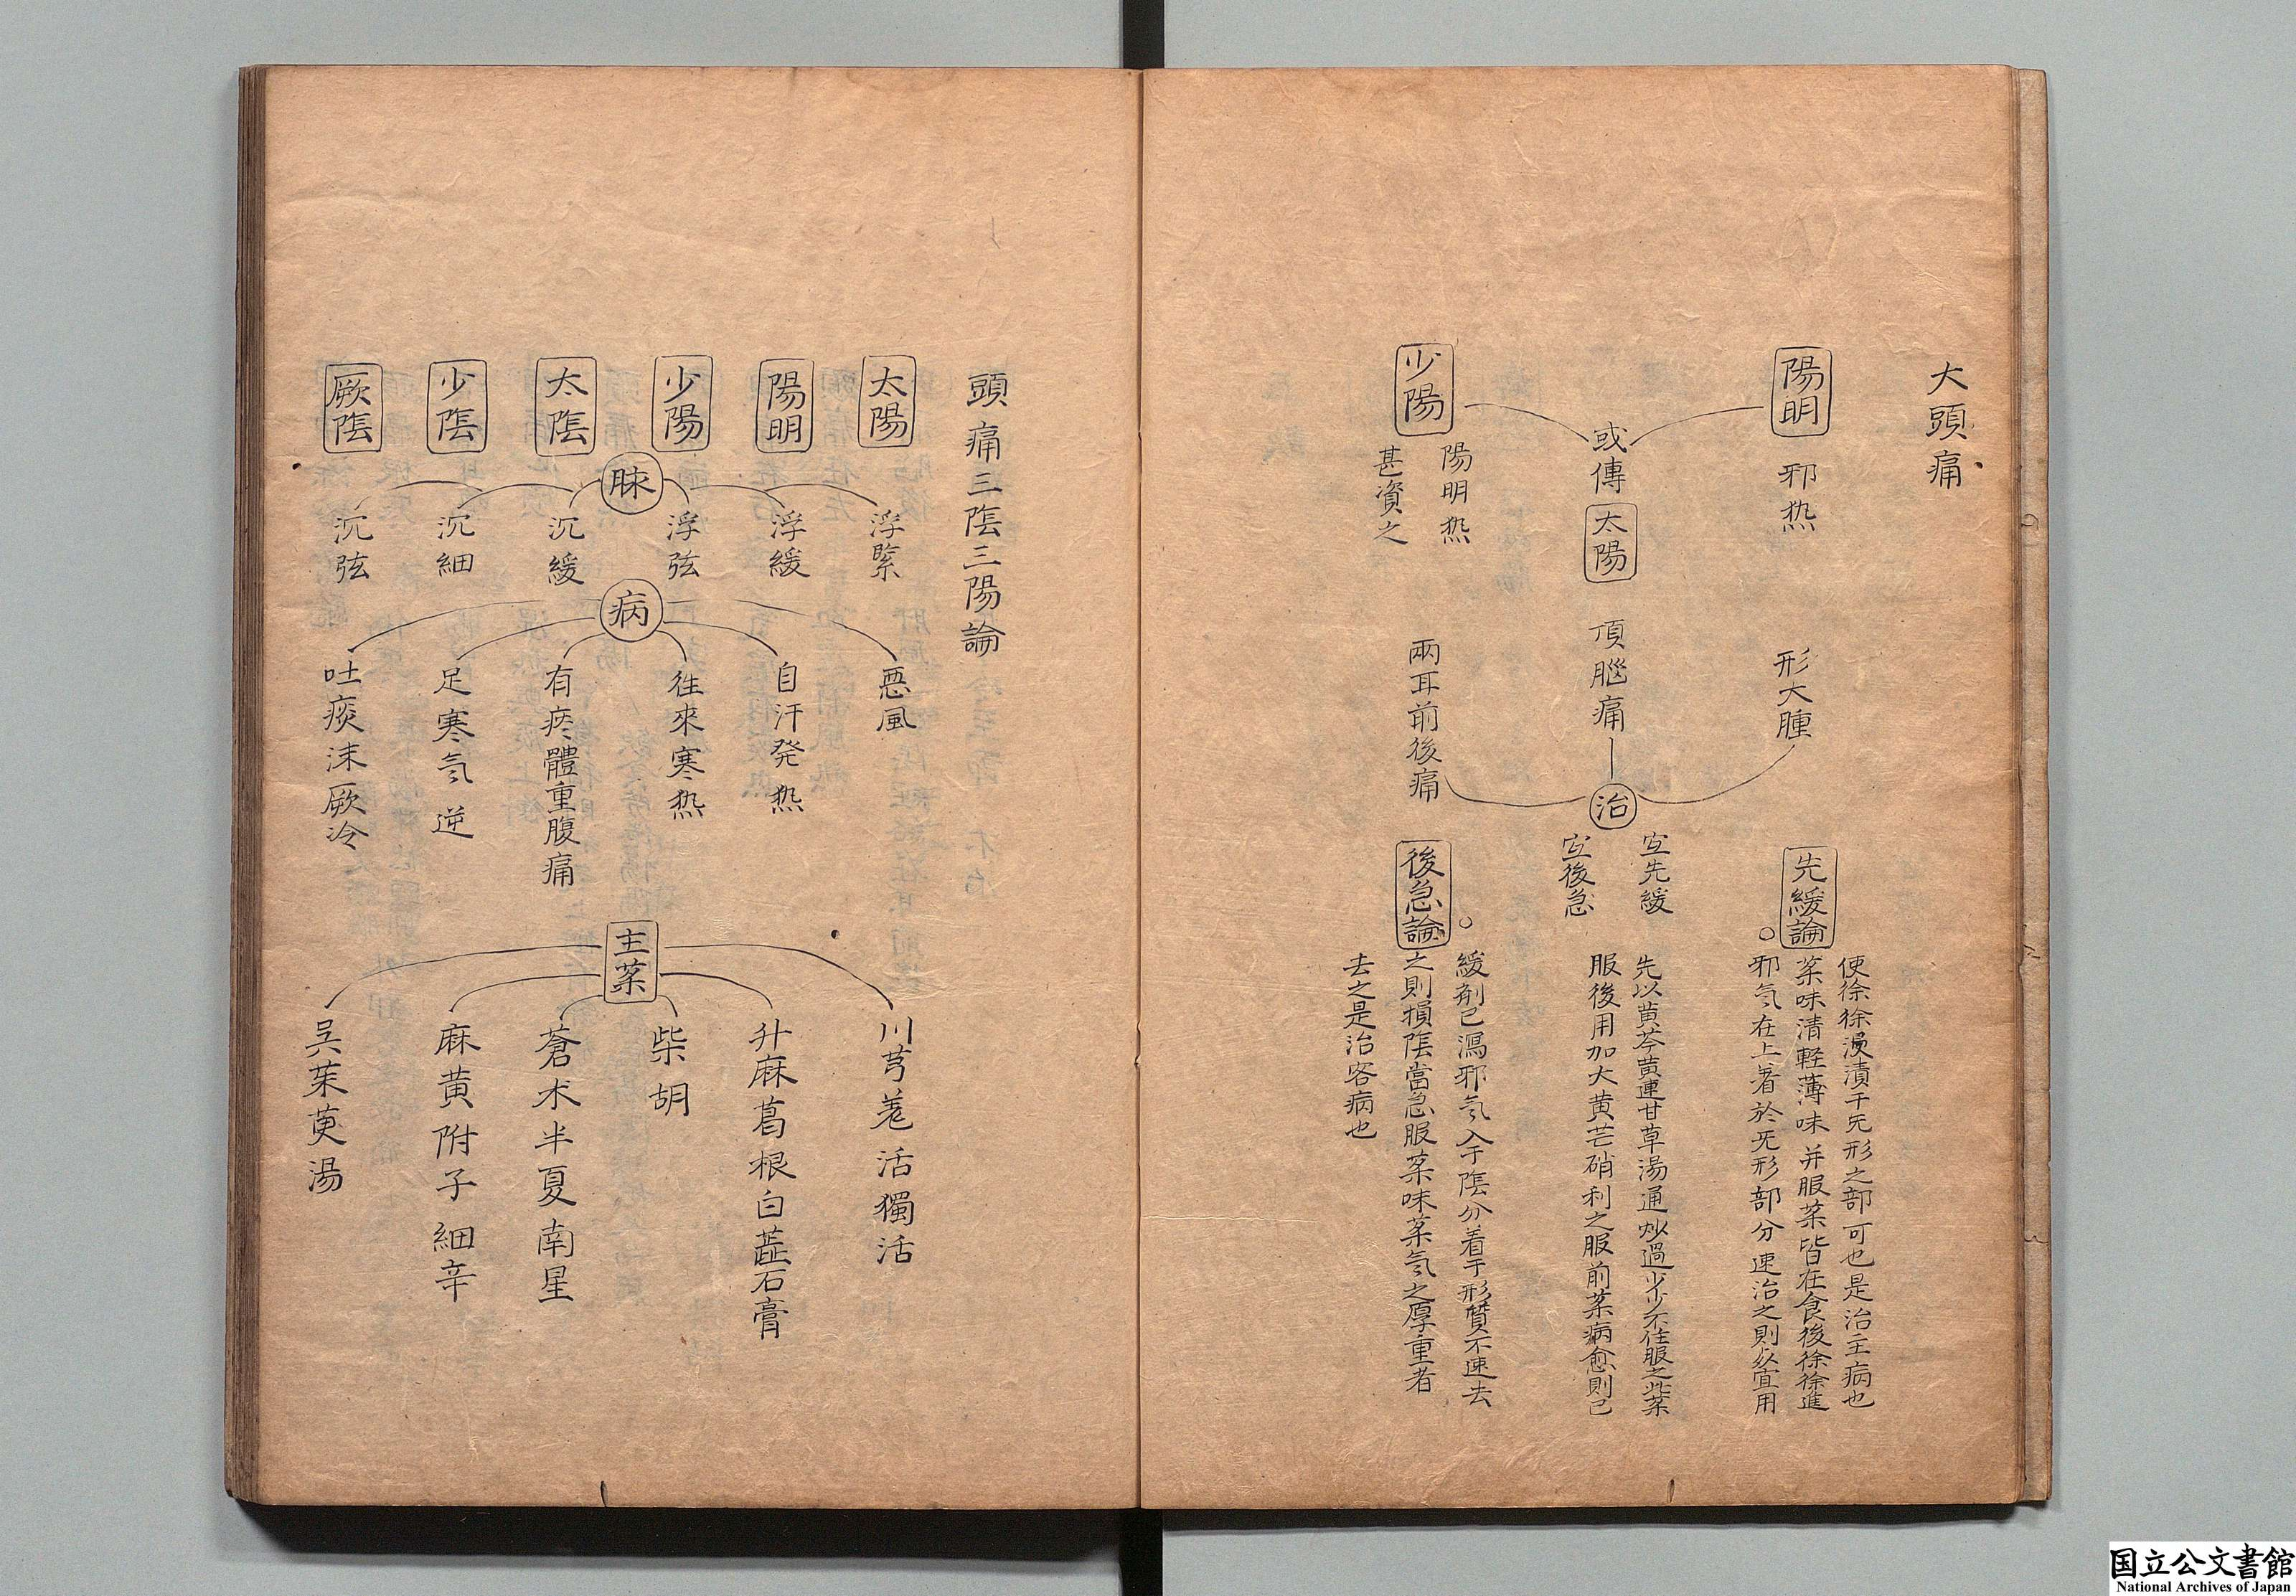 大頭痛
陽明
邪热
形大腫
先緩論
使徐徐浸漬于旡形之部可也是治主病也
薬味清軽薄味并服薬皆在食後徐徐進
邪気在上着於旡形部分速治之則
宜用
或傳
太陽
頂腦痛
治
宜先緩
宜後急
先以黄芩黄連甘草湯通炒過少少不住服之此薬
服後用加大黄芒硝利之服前薬病愈則已
少陽
陽明热
甚資之
兩耳前後痛
後急論
緩剤已瀉邪気入于陰分着于形質不速去
之則損陰當急服薬味薬気之厚重者
去之是治客病也
頭痛三陰三陽論
太陽
陽明
少陽
太陰
少陰
厥陰
脉
浮緊
浮緩
浮弦
沉緩
沉細
沉弦
病
悪風
自汗発热
往來寒热
有痰體重腹痛
足寒気逆
吐痰沫厥冷
主薬
川芎羌活獨活
升麻葛根白芷石膏
柴胡
蒼术半夏南星
麻黄附子細辛
呉茱萸湯
国立公文書館
National Archives of Japan